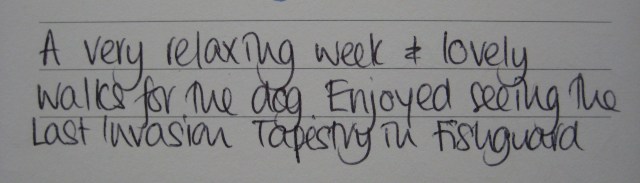 A very relaxing week & lovely
walks for the dog. Enjoyed seeing the
Last Invasion Tapestry in Fishguard